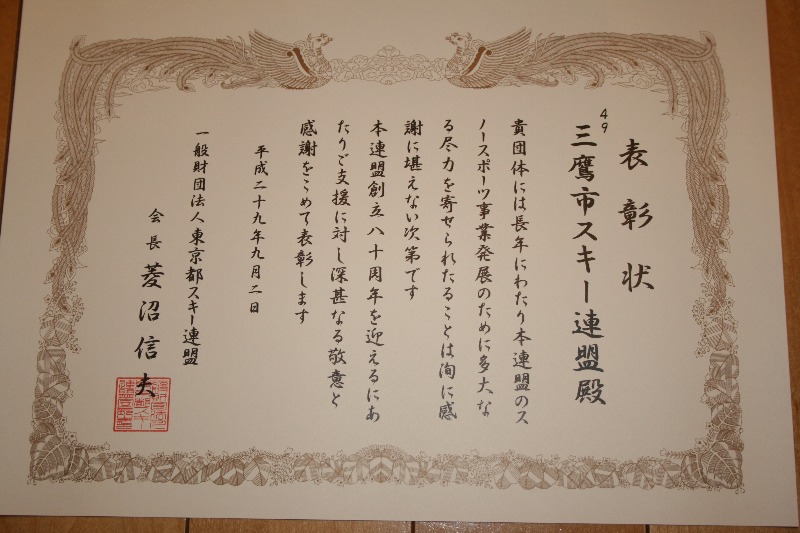 表彰状
49
三鷹市スキー連盟殿
貴団体には長年にわたり本連盟のス
ノースポーツ事業発展のために多大な
る尽力を寄せられたることは洵に感
謝に堪えない次第です
本連盟創立八十周年を迎えるにあ
たりご支援に対し深甚なる敬意と
感謝をこめて表彰します
平成二十九年九月二日
一般財団法人東京都スキー連盟
会長 菱沼信夫